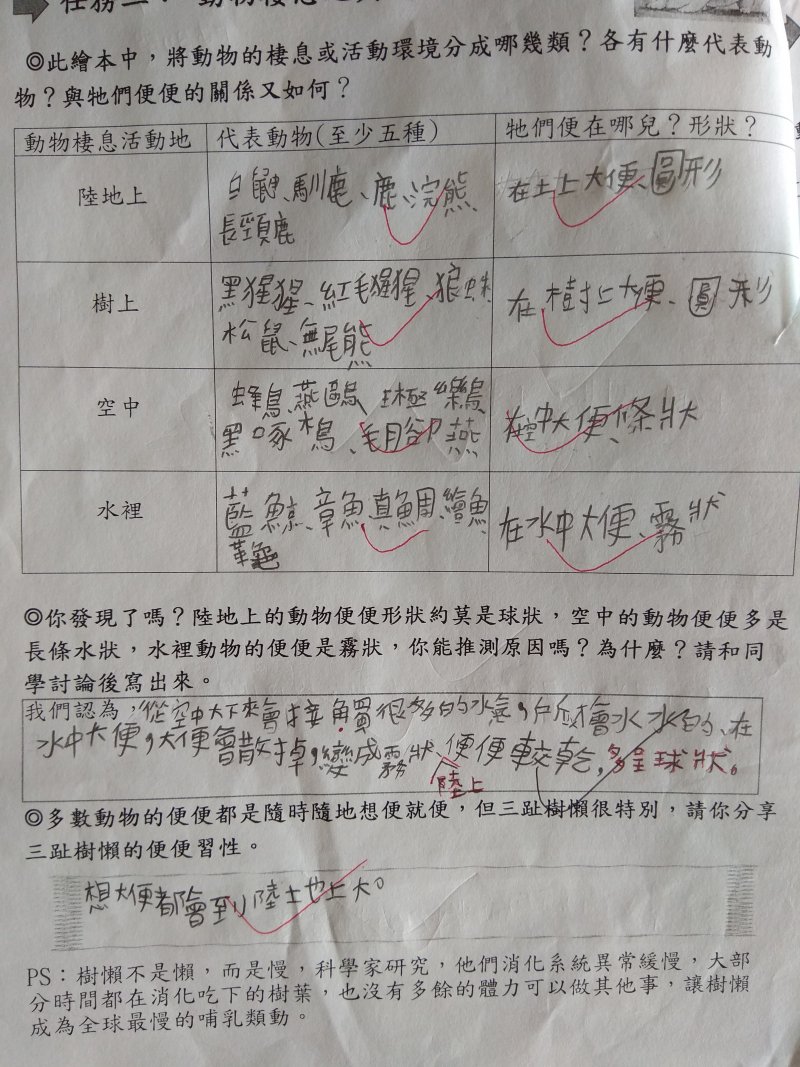 ◎此繪本中，將動物的棲息或活動環境分成哪幾類？各有什麼代表動
物？與牠們便便的關係又如何？
動物棲息活動地 代表動物(至少五種) 牠們便在哪兒？形狀？
陸地上
白鼬、馴鹿、鹿、浣熊、
長頸鹿
在土上大便、圓形
樹上
黑猩猩、紅毛猩猩、狼蛛、
松鼠、無尾熊
在樹上大便、圓形
空中
蜂鳥、燕鷗、球極樂鳥
黑啄木鳥、毛腳燕
在空中大便、條狀
水裡
藍鯨、章魚、真鯛、
革龜
在水中大便、霧狀
◎你發現了嗎？陸地上的動物便便形狀約莫是球狀，空中的動物便便多是
長條水狀，水裡動物的便便是霧狀，你能推測原因嗎？為什麼？請和同
學討論後寫出來。
我們認為，從空中大下來會接觸很多的水氣，所以會水水的、在
水中大便，大便會散掉，變成霧狀、便便較乾，多呈球狀。
陸上
◎多數動物的便便都是隨時隨地想便就便，但三趾樹懶很特別，請你分享
三趾樹懶的便便習性。
想大便都會到陸地上大。
PS：樹懶不是懶，而是慢，科學家研究，他們消化系統異常緩慢，大部
分時間都在消化吃下的樹葉，也沒有多餘的體力可以做其他事，讓樹懶
成為全球最慢的哺乳類動。